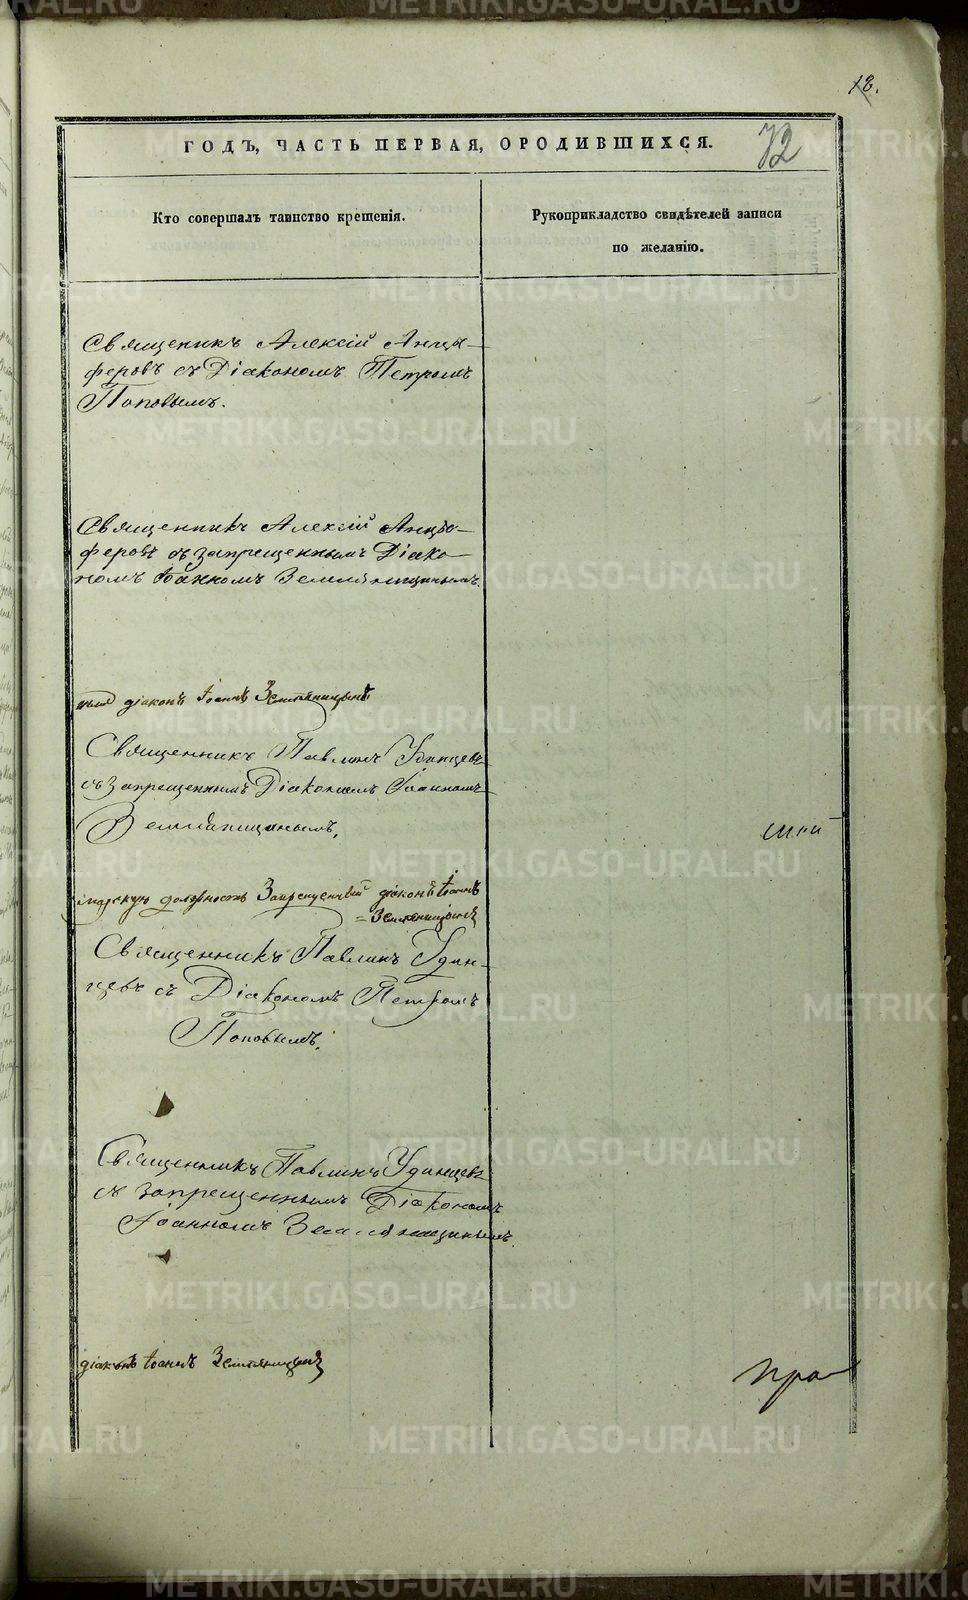 18.
ГОДЪ, ЧАСТЬ ПЕРВАЯ, О РОДИВШИХСЯ.
72
Кто совершалъ таинство крещенія.
Рукоприкладство свидѣтелей записи
по желанію.
Священникъ Алексій Анцы-
феровъ съ Діакономъ Петромъ
Поповымъ.
Священникъ Алексій Анцы-
феровъ съ запрещеннымъ Діако-
номъ Іоанномъ Земляницинымъ.
діаконъ Іоаннъ Земляницынъ
Священникъ Павлинъ Удинцевъ
съ запрещеннымъ Діакономъ Іоанномъ
Земляницинымъ.
марскую должность Запрещенный діаконъ Іоаннъ
= Земляницынъ
Священникъ Павлинъ Удин-
цевъ съ Діакономъ Петромъ
Поповымъ.
Священникъ Павлинъ Удинцевъ
съ запрещеннымъ Діакономъ
Іоанномъ Земляницинымъ.
діаконъ Іоаннъ Земляницынъ
пра
METRIKI.GASO-URAL.RU